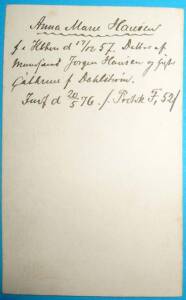 Anna Marie Hansen
f. i Kbhvn d 17/12 57. Datter af
Jørgen Hansen og Hustr
Cathrine f Dahlstrøm.
Indf d 20/5 76 /. Protok F, 52/